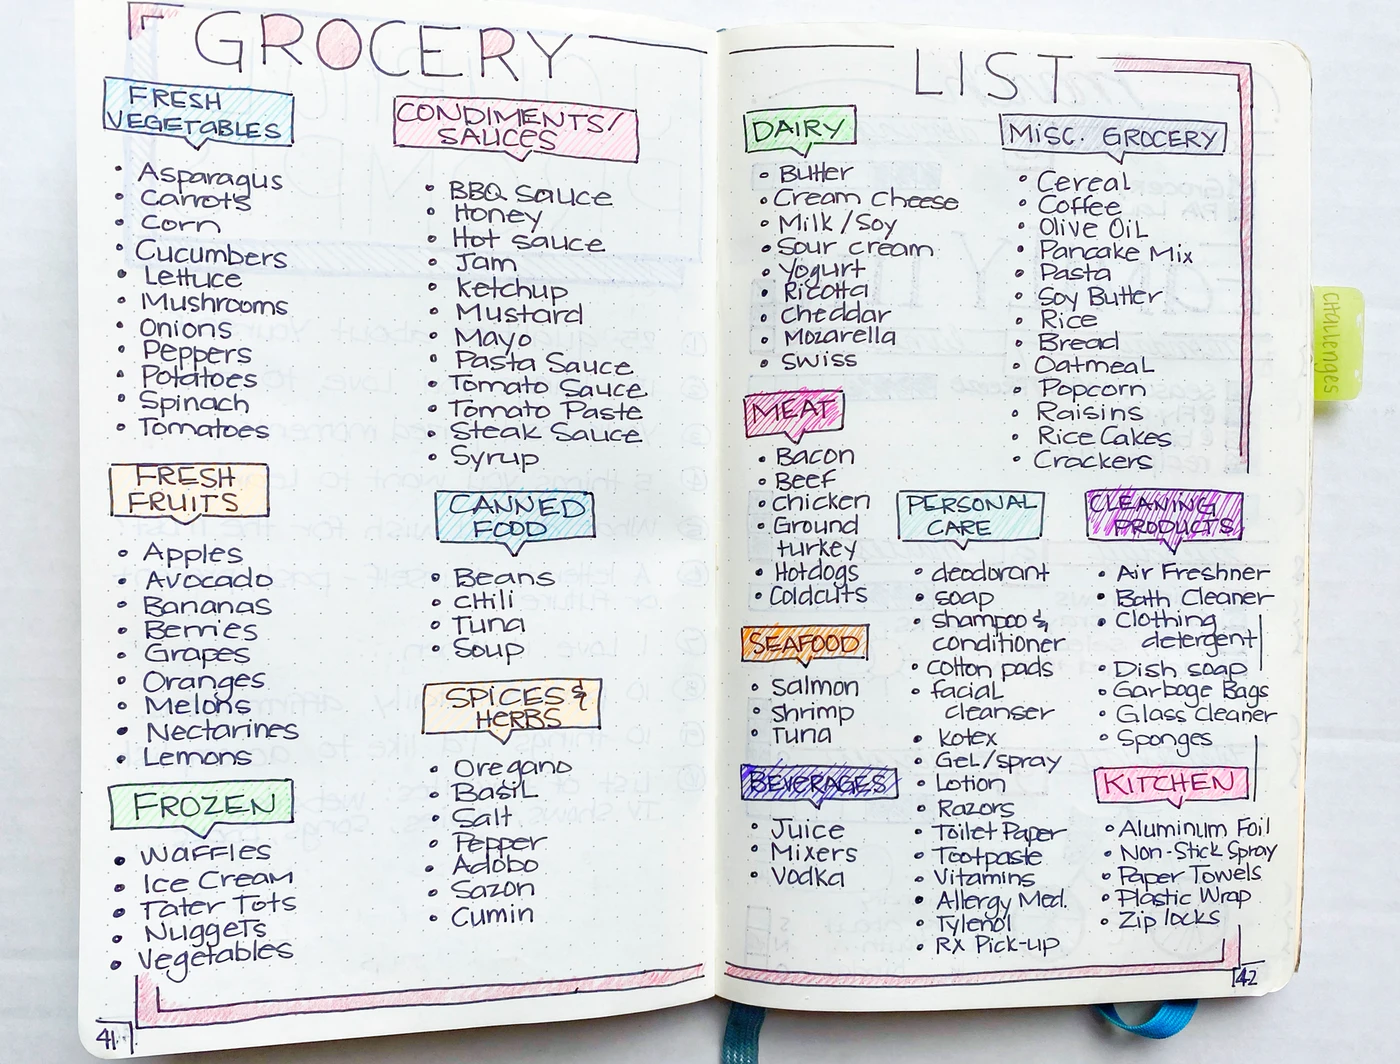 GROCERY
FRESH
VEGETABLES
• Asparagus
• Carrots
• Corn
• Cucumbers
• Lettuce
• Mushrooms
• Onions
• Peppers
• Potatoes
• Spinach
• Tomatoes
FRESH
FRUITS
• Apples
• Avocado
• Bananas
• Berries
• Grapes
• Oranges
• Melons
• Nectarines
• Lemons
FROZEN
• Waffles
• Ice Cream
• Tater Tots
• Nuggets
• Vegetables
41
CONDIMENTS/
SAUCES
• BBQ Sauce
• Honey
• Hot sauce
• Jam
• Ketchup
• Mustard
• Mayo
• Pasta Sauce
• Tomato Sauce
• Tomato Paste
• Steak Sauce
• Syrup
CANNED
FOOD
• Beans
• Chili
• Tuna
• Soup
SPICES &
HERBS
• Oregano
• Basil
• Salt
• Pepper
• Adobo
• Sazon
• Cumin
LIST
DAIRY
• Butter
• Cream Cheese
• Milk/Soy
• Sour cream
• Yogurt
• Ricotta
• Cheddar
• Mozarella
• Swiss
MEAT
• Bacon
• Beef
• Chicken
• Ground
turkey
• Hotdogs
• Coldcuts
SEAFOOD
• Salmon
• Shrimp
• Tuna
BEVERAGES
• Juice
• Mixers
• Vodka
MISC. GROCERY
• Cereal
• Coffee
• Olive Oil
• Pancake Mix
• Pasta
• Soy Butter
• Rice
• Bread
• Oatmeal
• Popcorn
• Raisins
• Rice Cakes
• Crackers
PERSONAL
CARE
• deodorant
• soap
• shampoo &
conditioner
• cotton pads
• facial
cleanser
• Kotex
• Gel/spray
• Lotion
• Razors
• Toilet Paper
• Tootpaste
• Vitamins
• Allergy Med.
• Tylenol
• RX Pick-up
CLEANING
PRODUCTS
• Air Freshner
• Bath Cleaner
• Clothing
detergent
• Dish soap
• Garbage Bags
• Glass Cleaner
• Sponges
KITCHEN
• Aluminum Foil
• Non-Stick Spray
• Paper Towels
• Plastic Wrap
• Zip locks
42
Challenges